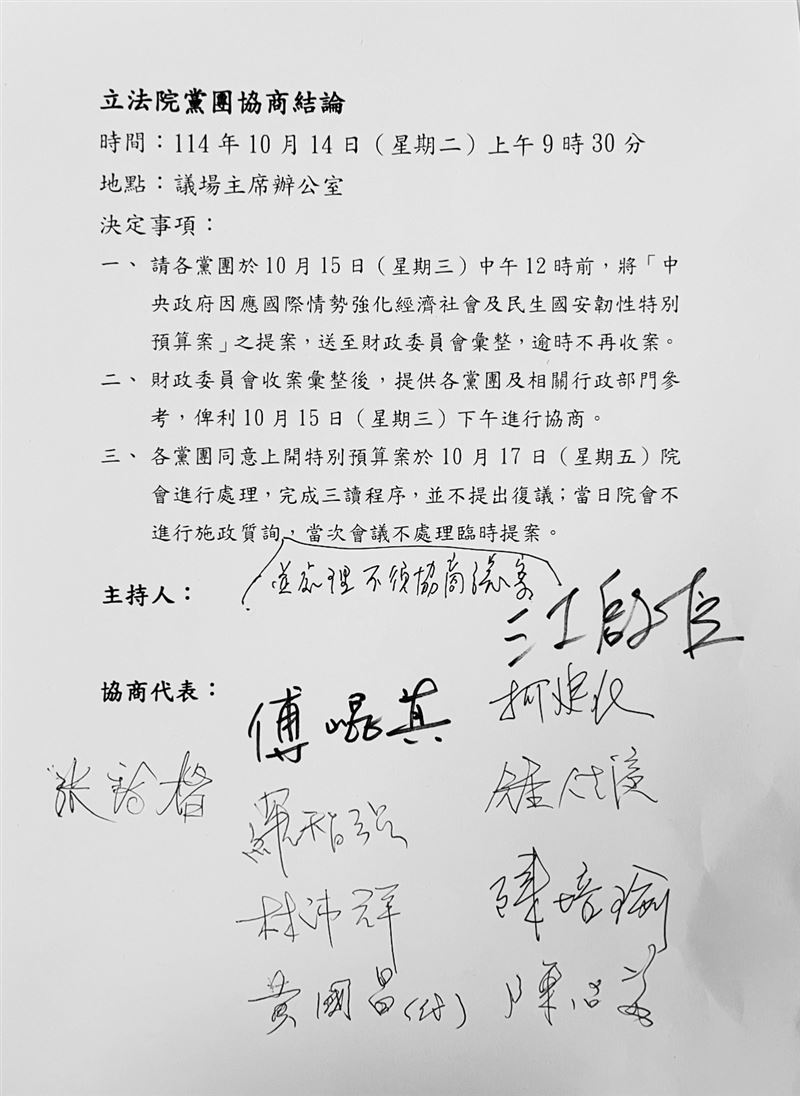 立法院黨團協商結論
時間：114年10月14日（星期二）上午9時30分
地點：議場主席辦公室
決定事項：
一、請各黨團於10月15日（星期三）中午12時前，將「中
央政府因應國際情勢強化經濟社會及民生國安韌性特別
預算案」之提案，送至財政委員會彙整，逾時不再收案。
二、財政委員會收案彙整後，提供各黨團及相關行政部門參
考，俾利10月15日（星期三）下午進行協商。
三、各黨團同意上開特別預算案於10月17日（星期五）院
會進行處理，完成三讀程序，並不提出復議；當日院會不
進行施政質詢，當次會議不處理臨時提案。
並處理不須協商議案
主持人：
江啟臣
協商代表：
傅崐萁
柯建銘
張啓楷
鍾佳濱
羅智強
林沛祥
陳培瑜
黃國昌(代)